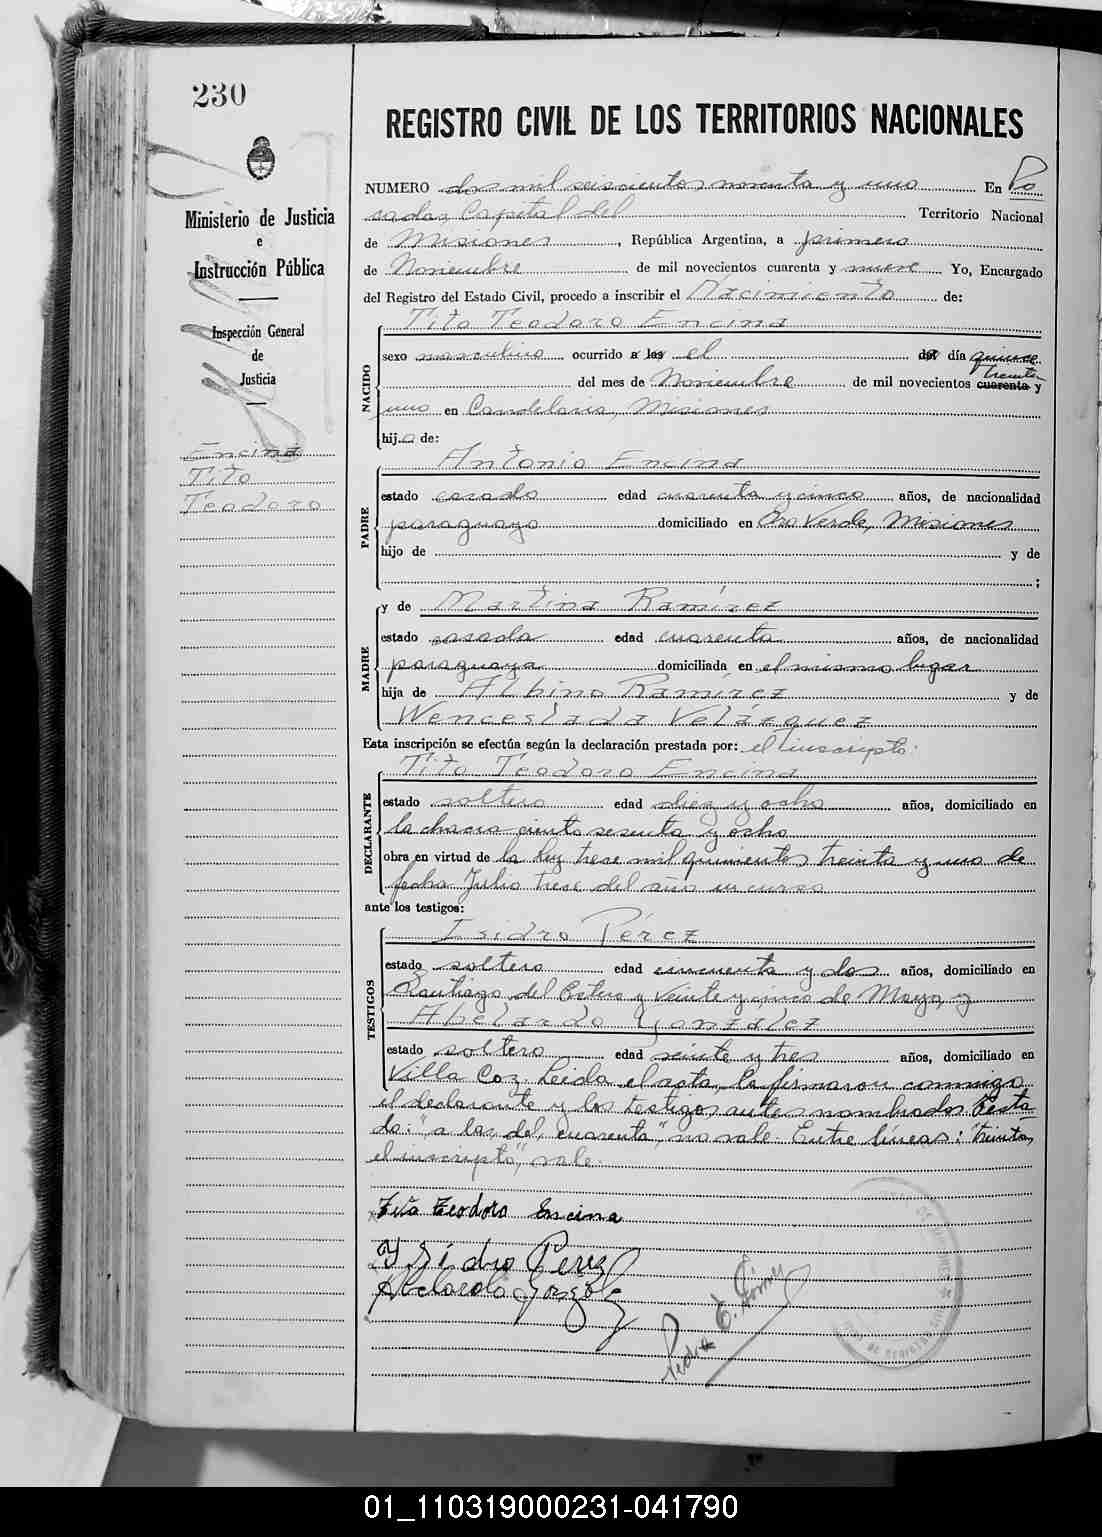 230
Ministerio de Justicia
e
Instrucción Pública
Inspección General
de
Justicia
Encina
Tito
Teodoro
REGISTRO CIVIL DE LOS TERRITORIOS NACIONALES
NUMERO dos mil seiscientos noventa y uno En Po
sadas Capital del Territorio Nacional
de Misiones, República Argentina, a primero
de Noviembre de mil novecientos cuarenta y nueve Yo, Encargado
del Registro del Estado Civil, procedo a inscribir el Nacimiento de:
NACIDO
Tito Teodoro Encina
sexo masculino ocurrido a las el del día quince
treinta
del mes de Noviembre de mil novecientos cuarenta y
uno en Candelaria, Misiones
hijo de:
PADRE
Antonio Encina
estado casado edad cuarenta y cinco años, de nacionalidad
paraguayo domiciliado en Oro Verde, Misiones
hijo de y de
;
MADRE
y de Martina Ramírez
estado casada edad cuarenta años, de nacionalidad
paraguaya domiciliada en el mismo lugar
hija de Albino Ramírez y de
Wenceslada Velázquez
Esta inscripción se efectúa según la declaración prestada por: el inscripto.
DECLARANTE
Tito Teodoro Encina
estado soltero edad diez y ocho años, domiciliado en
la chacra ciento sesenta y ocho
obra en virtud de la ley trece mil quinientos treinta y uno de
fecha Julio trece del año en curso
ante los testigos:
TESTIGOS
Isidro Pérez
estado soltero edad cincuenta y dos años, domiciliado en
Santiago del Estero y Veinte y cinco de Mayo, y
Abelardo González
estado soltero edad veinte y tres años, domiciliado en
Villa Coz. Leida el acta, la firmaron conmigo
el declarante y los testigos antes nombrados Testa
do: "a las, del, cuarenta", no vale. Entre líneas: "treinta,
el inscripto", vale.
Tito Teodoro Encina
Ysidro Perez
Abelardo Gonzalez
Pedro E.
01_110319000231-041790